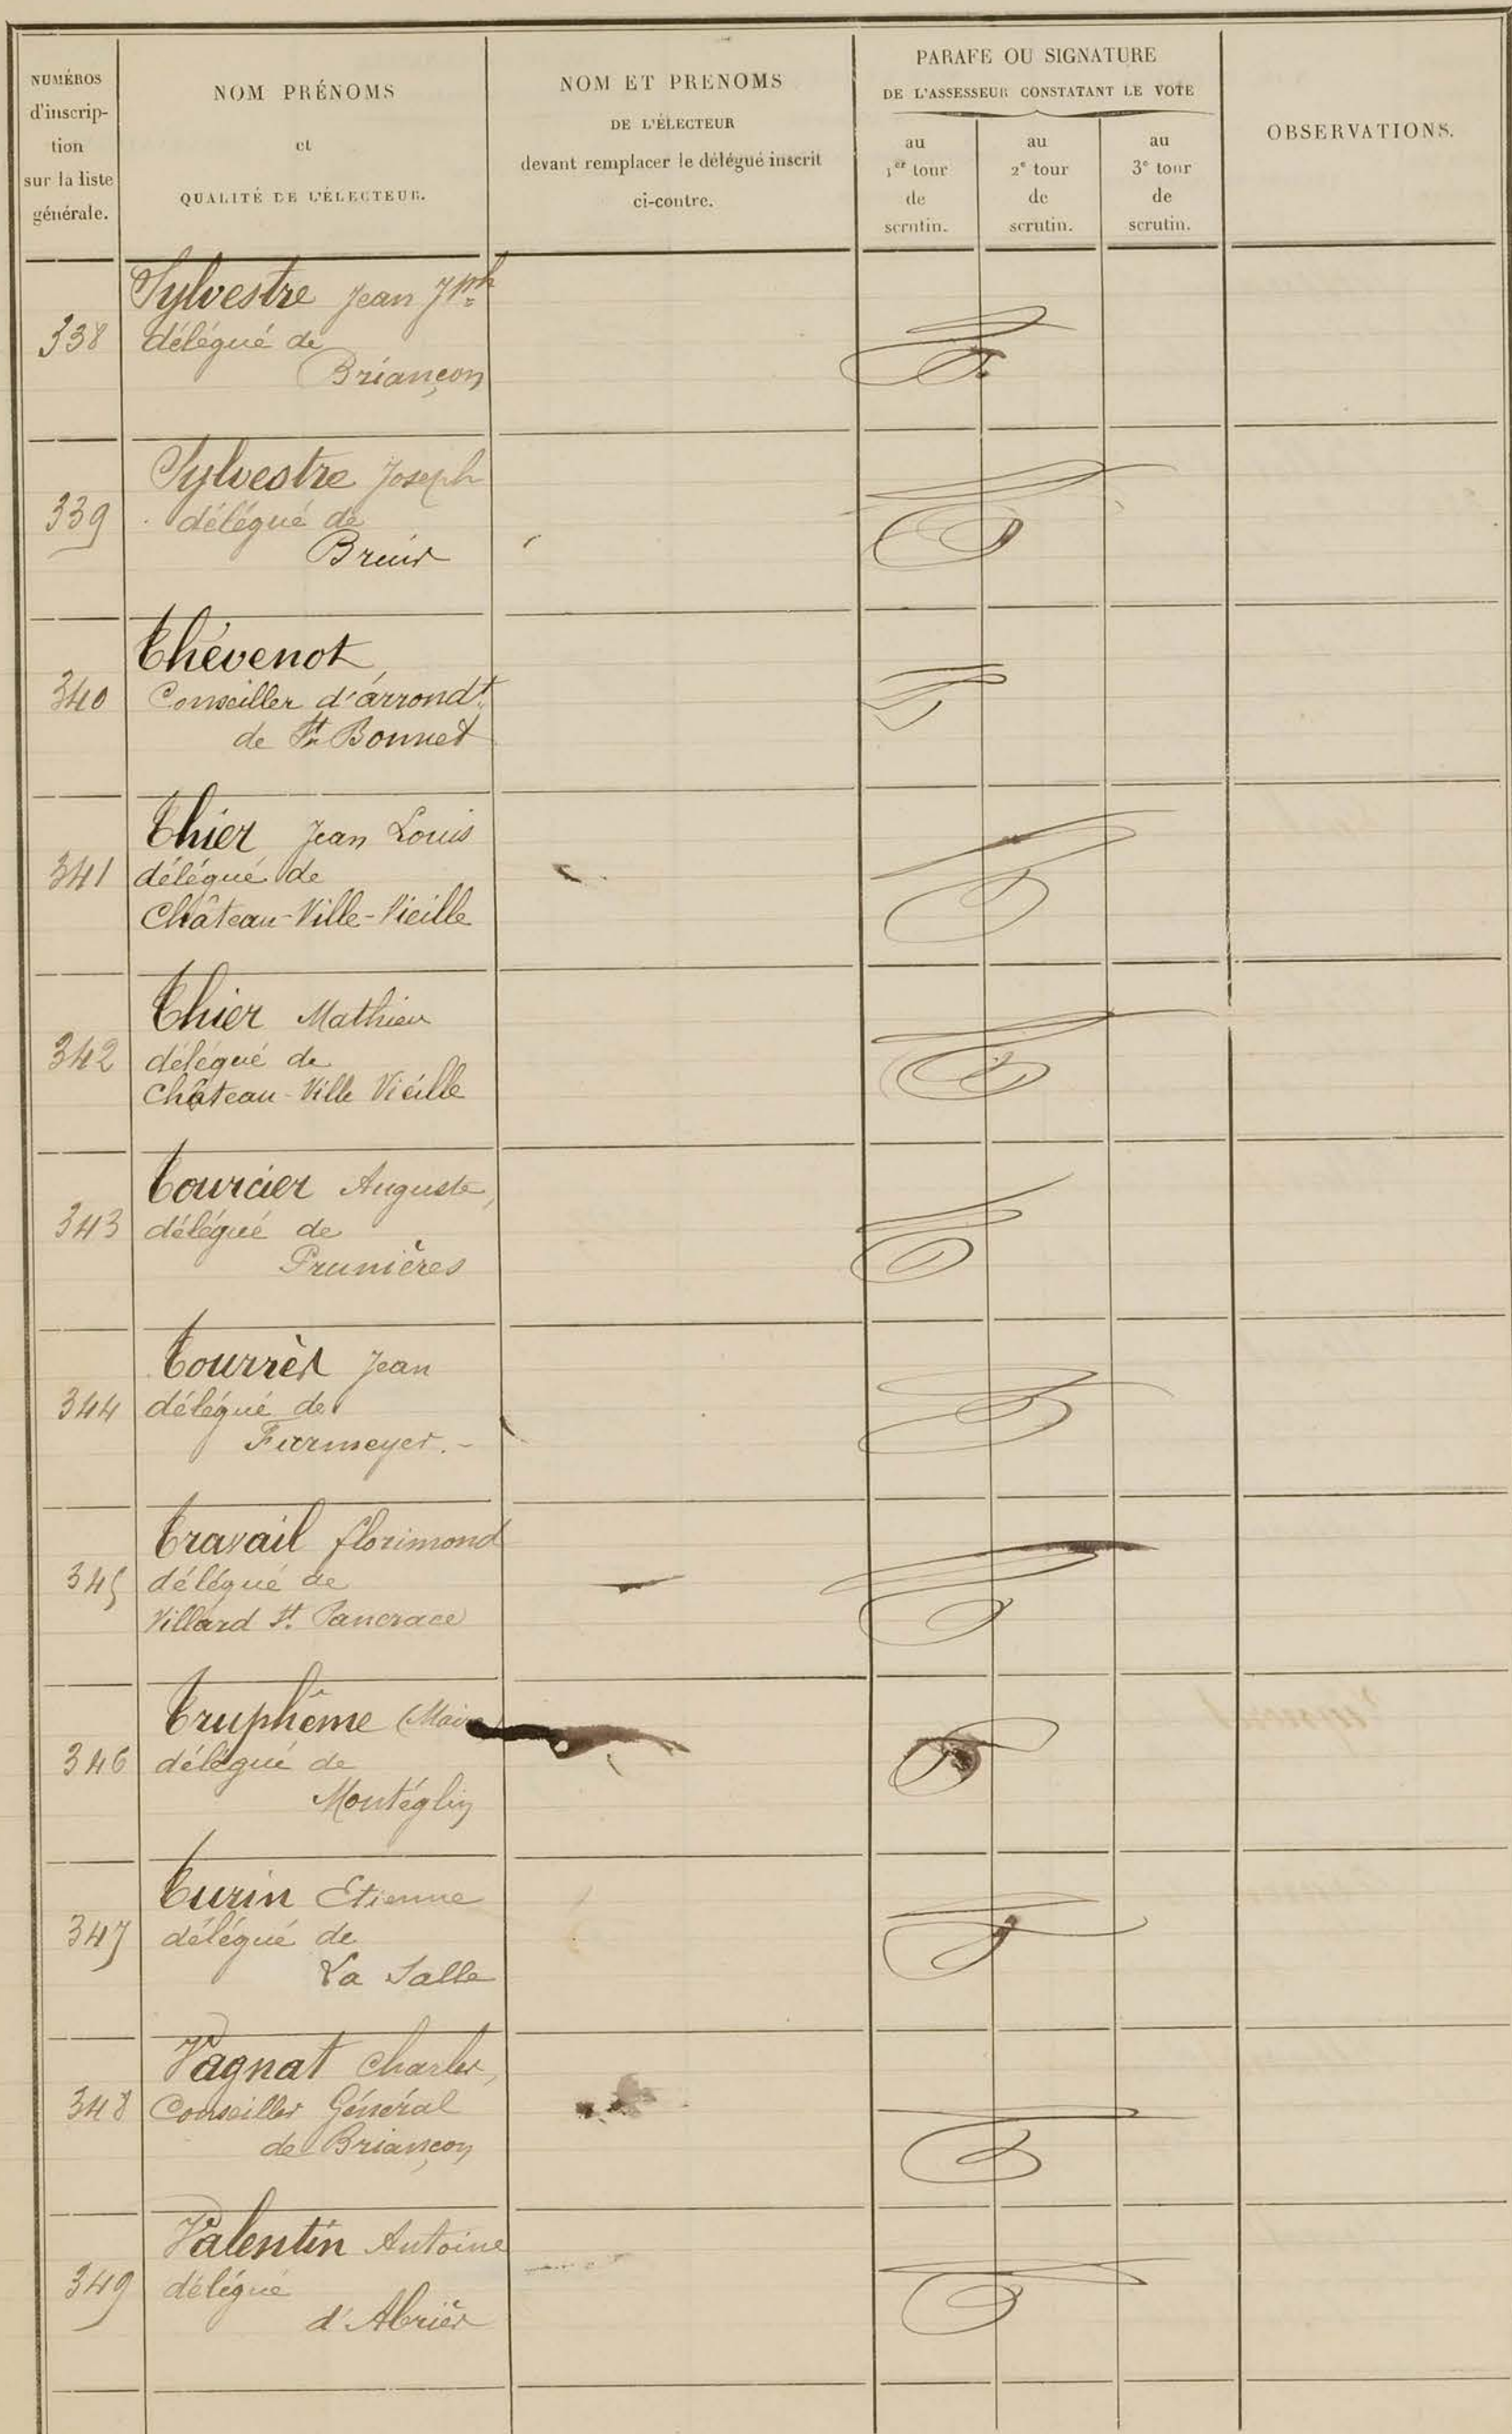 NUMÉROS
d'inscrip-
tion
sur la liste
générale.
NOM PRÉNOMS
et
QUALITÉ DE L'ÉLECTEUR.
NOM ET PRENOMS
DE L'ÉLECTEUR
devant remplacer le délégué inscrit
ci-contre.
PARAFE OU SIGNATURE
DE L'ASSESSEUR CONSTATANT LE VOTE
au
1er tour
de
scrutin.
au
2e tour
de
scrutin.
au
3e tour
de
scrutin.
OBSERVATIONS.
Sylvestre Jean Jph
338 délégué de
Briançon
Sylvestre Joseph
339 délégué de
Bruis
Thévenot
340 Conseiller d'arrondt
de St Bonnet
Thier Jean Louis
341 délégué de
Château-Ville-Vieille
Thier Mathieu
342 délégué de
Château-Ville Vieille
Tourcier Auguste,
343 délégué de
Prunières
Tourrès Jean
344 délégué de
Furmeyer.-
Travail florimond
345 délégué de
Villard St. Pancrace
Truphême (Maire
346 délégué de
Montéglin
Turin Etienne
347 délégué de
La Salle
Vagnat Charles,
348 Conseiller Général
de Briançon
Valentin Antoine
349 délégué
d'Abriès